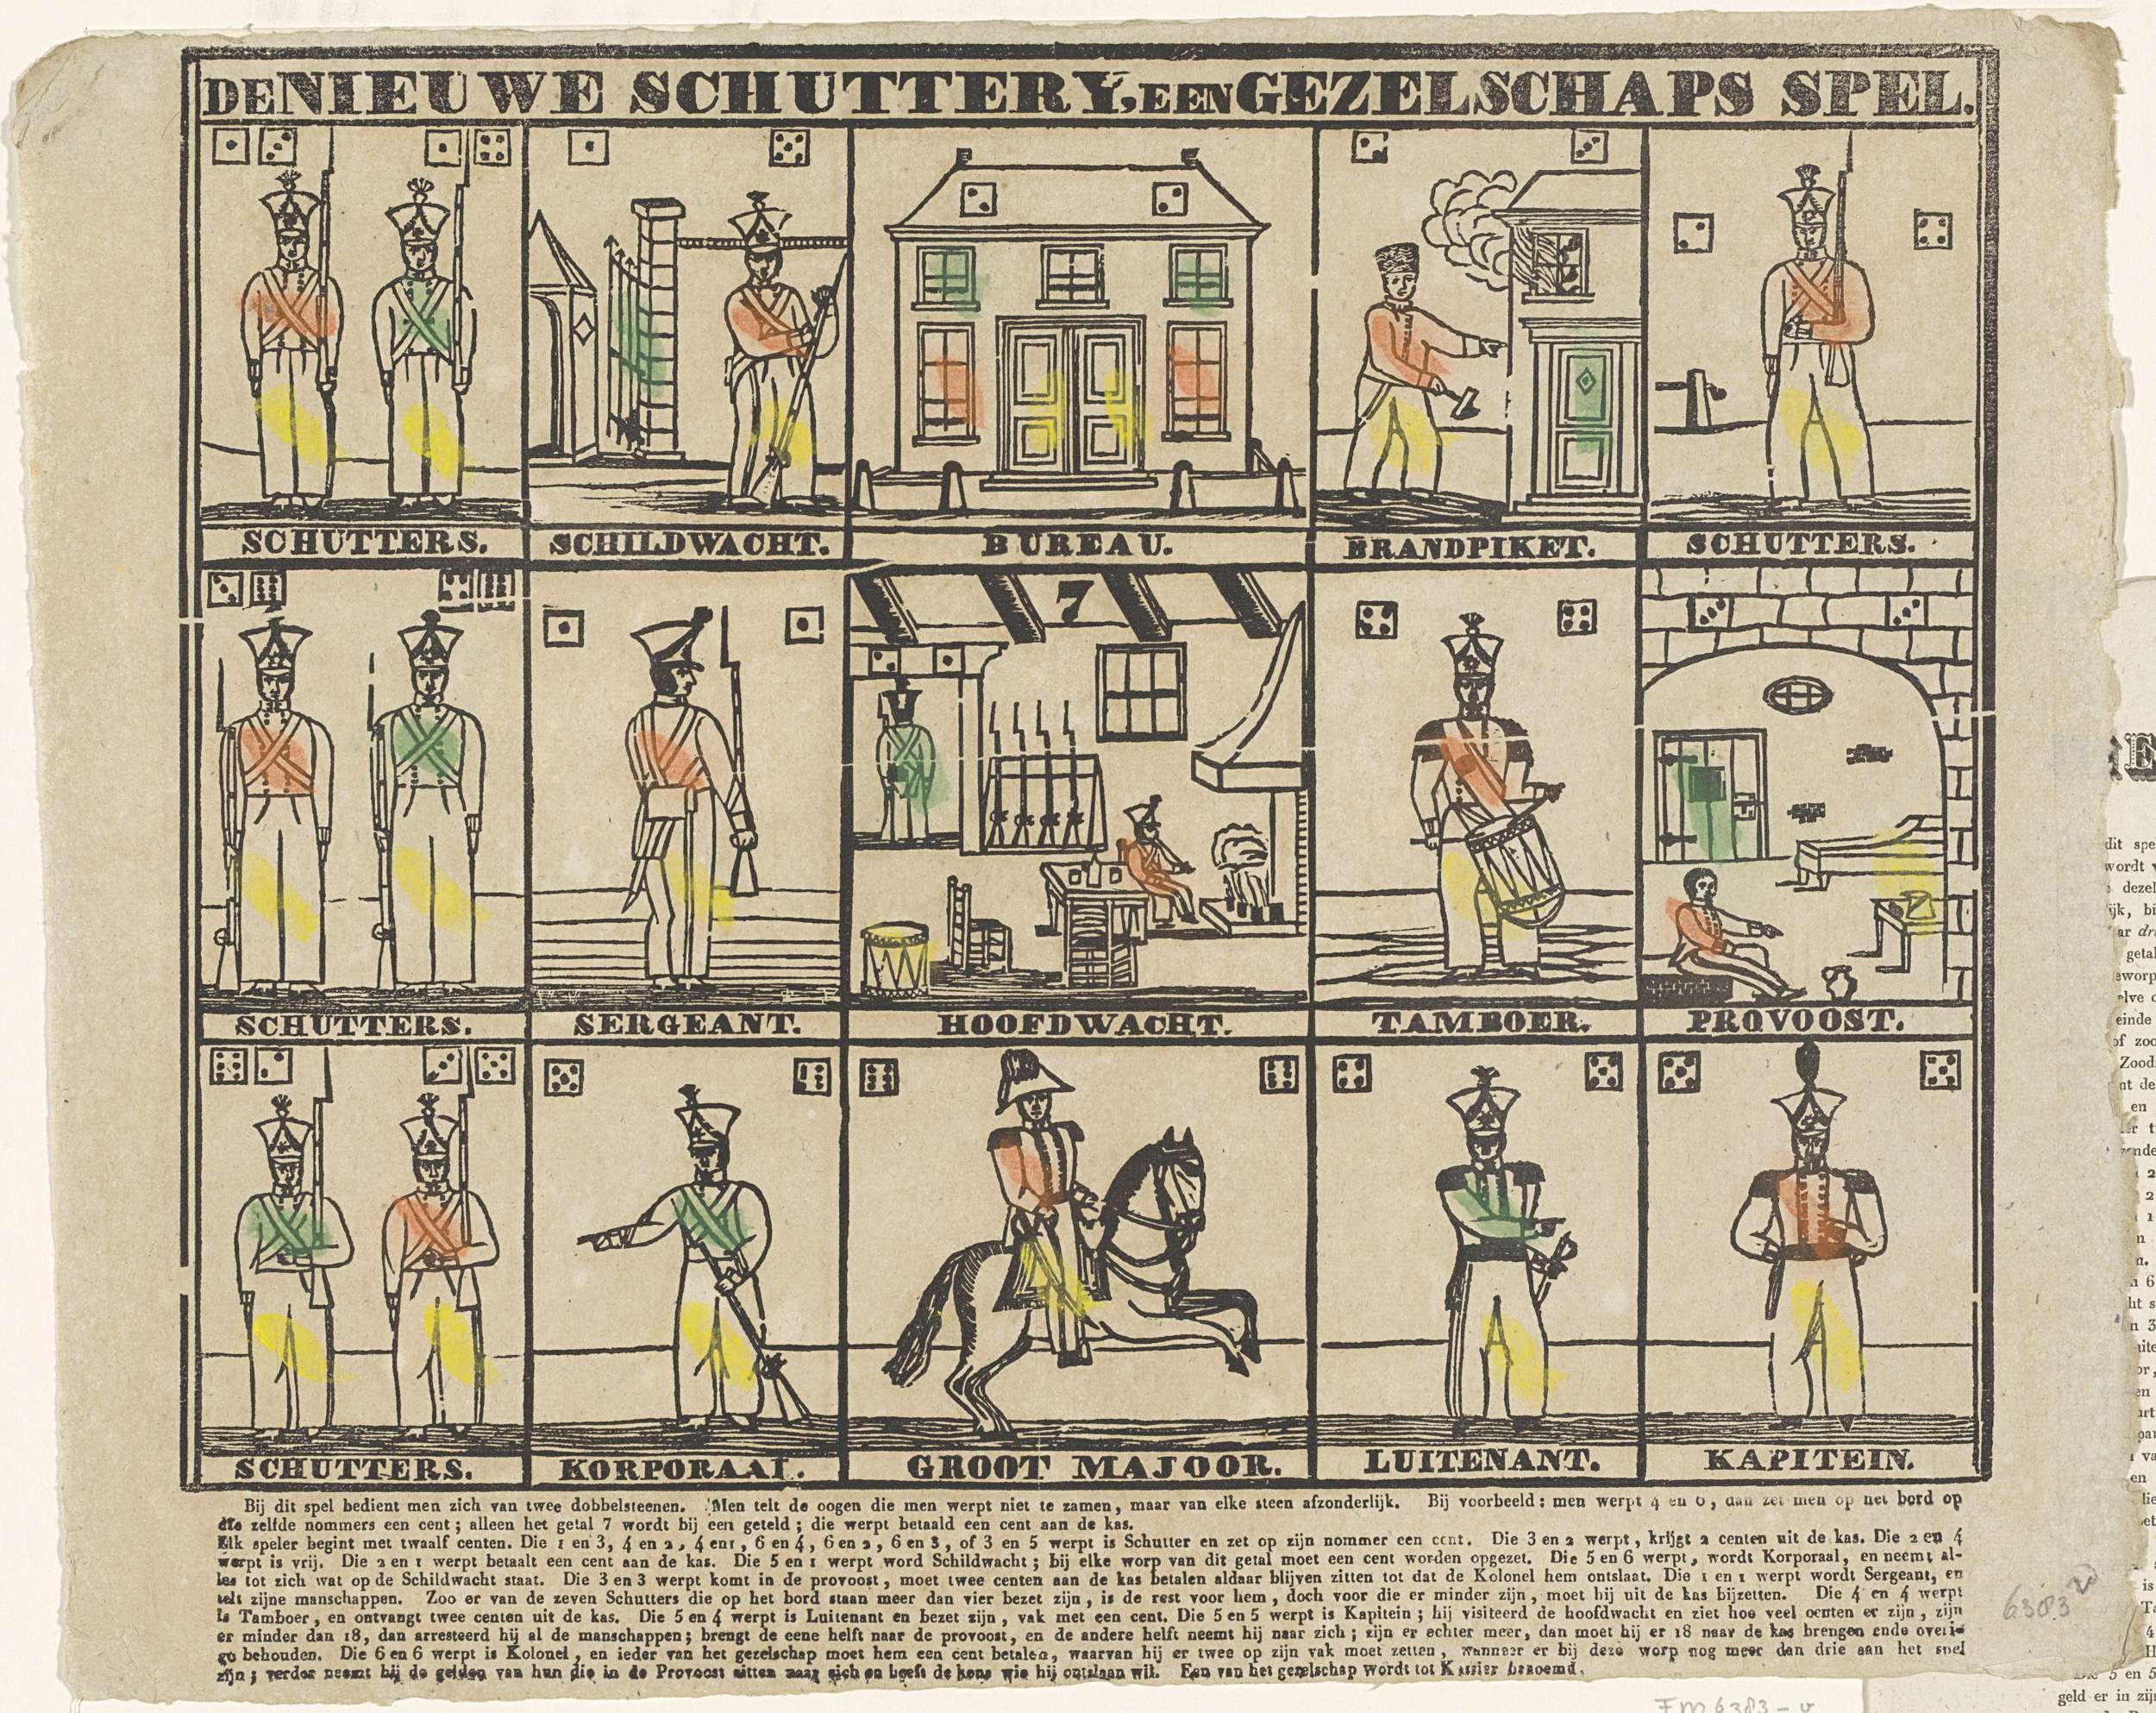 DE NIEUWE SCHUTTERY, EEN GEZELSCHAPS SPEL.
SCHUTTERS. SCHILDWACHT. BUREAU. BRANDPIKET. SCHUTTERS.
7
SCHUTTERS. SERGEANT. HOOFDWACHT. TAMBOER. PROVOOST.
SCHUTTERS. KORPORAAL. GROOT MAJOOR. LUITENANT. KAPITEIN.
Bij dit spel bedient men zich van twee dobbelsteenen. Men telt de oogen die men werpt niet te zamen, maar van elke steen afzonderlijk. Bij voorbeeld: men werpt 4 en 6, dan zet men op het bord op
die zelfde nommers een cent; alleen het getal 7 wordt bij een geteld; die werpt betaald een cent aan de kas.
Elk speler begint met twaalf centen. Die 1 en 3, 4 en 2, 4 en 1, 6 en 4, 6 en 2, 6 en 3, of 3 en 5 werpt is Schutter en zet op zijn nommer een cent. Die 3 en 2 werpt, krijgt 2 centen uit de kas. Die 2 en 4
werpt is vrij. Die 2 en 1 werpt betaalt een cent aan de kas. Die 5 en 1 werpt word Schildwacht; bij elke worp van dit getal moet een cent worden opgezet. Die 5 en 6 werpt, wordt Korporaal, en neemt al-
les tot zich wat op de Schildwacht staat. Die 3 en 3 werpt komt in de provoost, moet twee centen aan de kas betalen aldaar blijven zitten tot dat de Kolonel hem ontslaat. Die 1 en 1 werpt wordt Sergeant, en
telt zijne manschappen. Zoo er van de zeven Schutters die op het bord staan meer dan vier bezet zijn, is de rest voor hem, doch voor die er minder zijn, moet hij uit de kas bijzetten. Die 4 en 4 werpt
is Tamboer, en ontvangt twee centen uit de kas. Die 5 en 4 werpt is Luitenant en bezet zijn, vak met een cent. Die 5 en 5 werpt is Kapitein; hij visiteerd de hoofdwacht en ziet hoe veel centen er zijn, zijn
er minder dan 18, dan arresteerd hij al de manschappen; brengt de eene helft naar de provoost, en de andere helft neemt hij naar zich; zijn er echter meer, dan moet hij er 18 naar de kas brengen ende overi-
ge behouden. Die 6 en 6 werpt is Kolonel, en ieder van het gezelschap moet hem een cent betalen, waarvan hij er twee op zijn vak moet zetten, wanneer er bij deze worp nog meer dan drie aan het spel
zijn; verder neemt hij de gelden van hun die in de Provoost zitten naar zich en heeft de keus wie hij ontslaan wil. Een van het gezelschap wordt tot Kassier benoemd.
6383
FM 6383-v
dit spe
wordt
dezel
getal
einde
Zood
en
5 en 5
geld er in zij